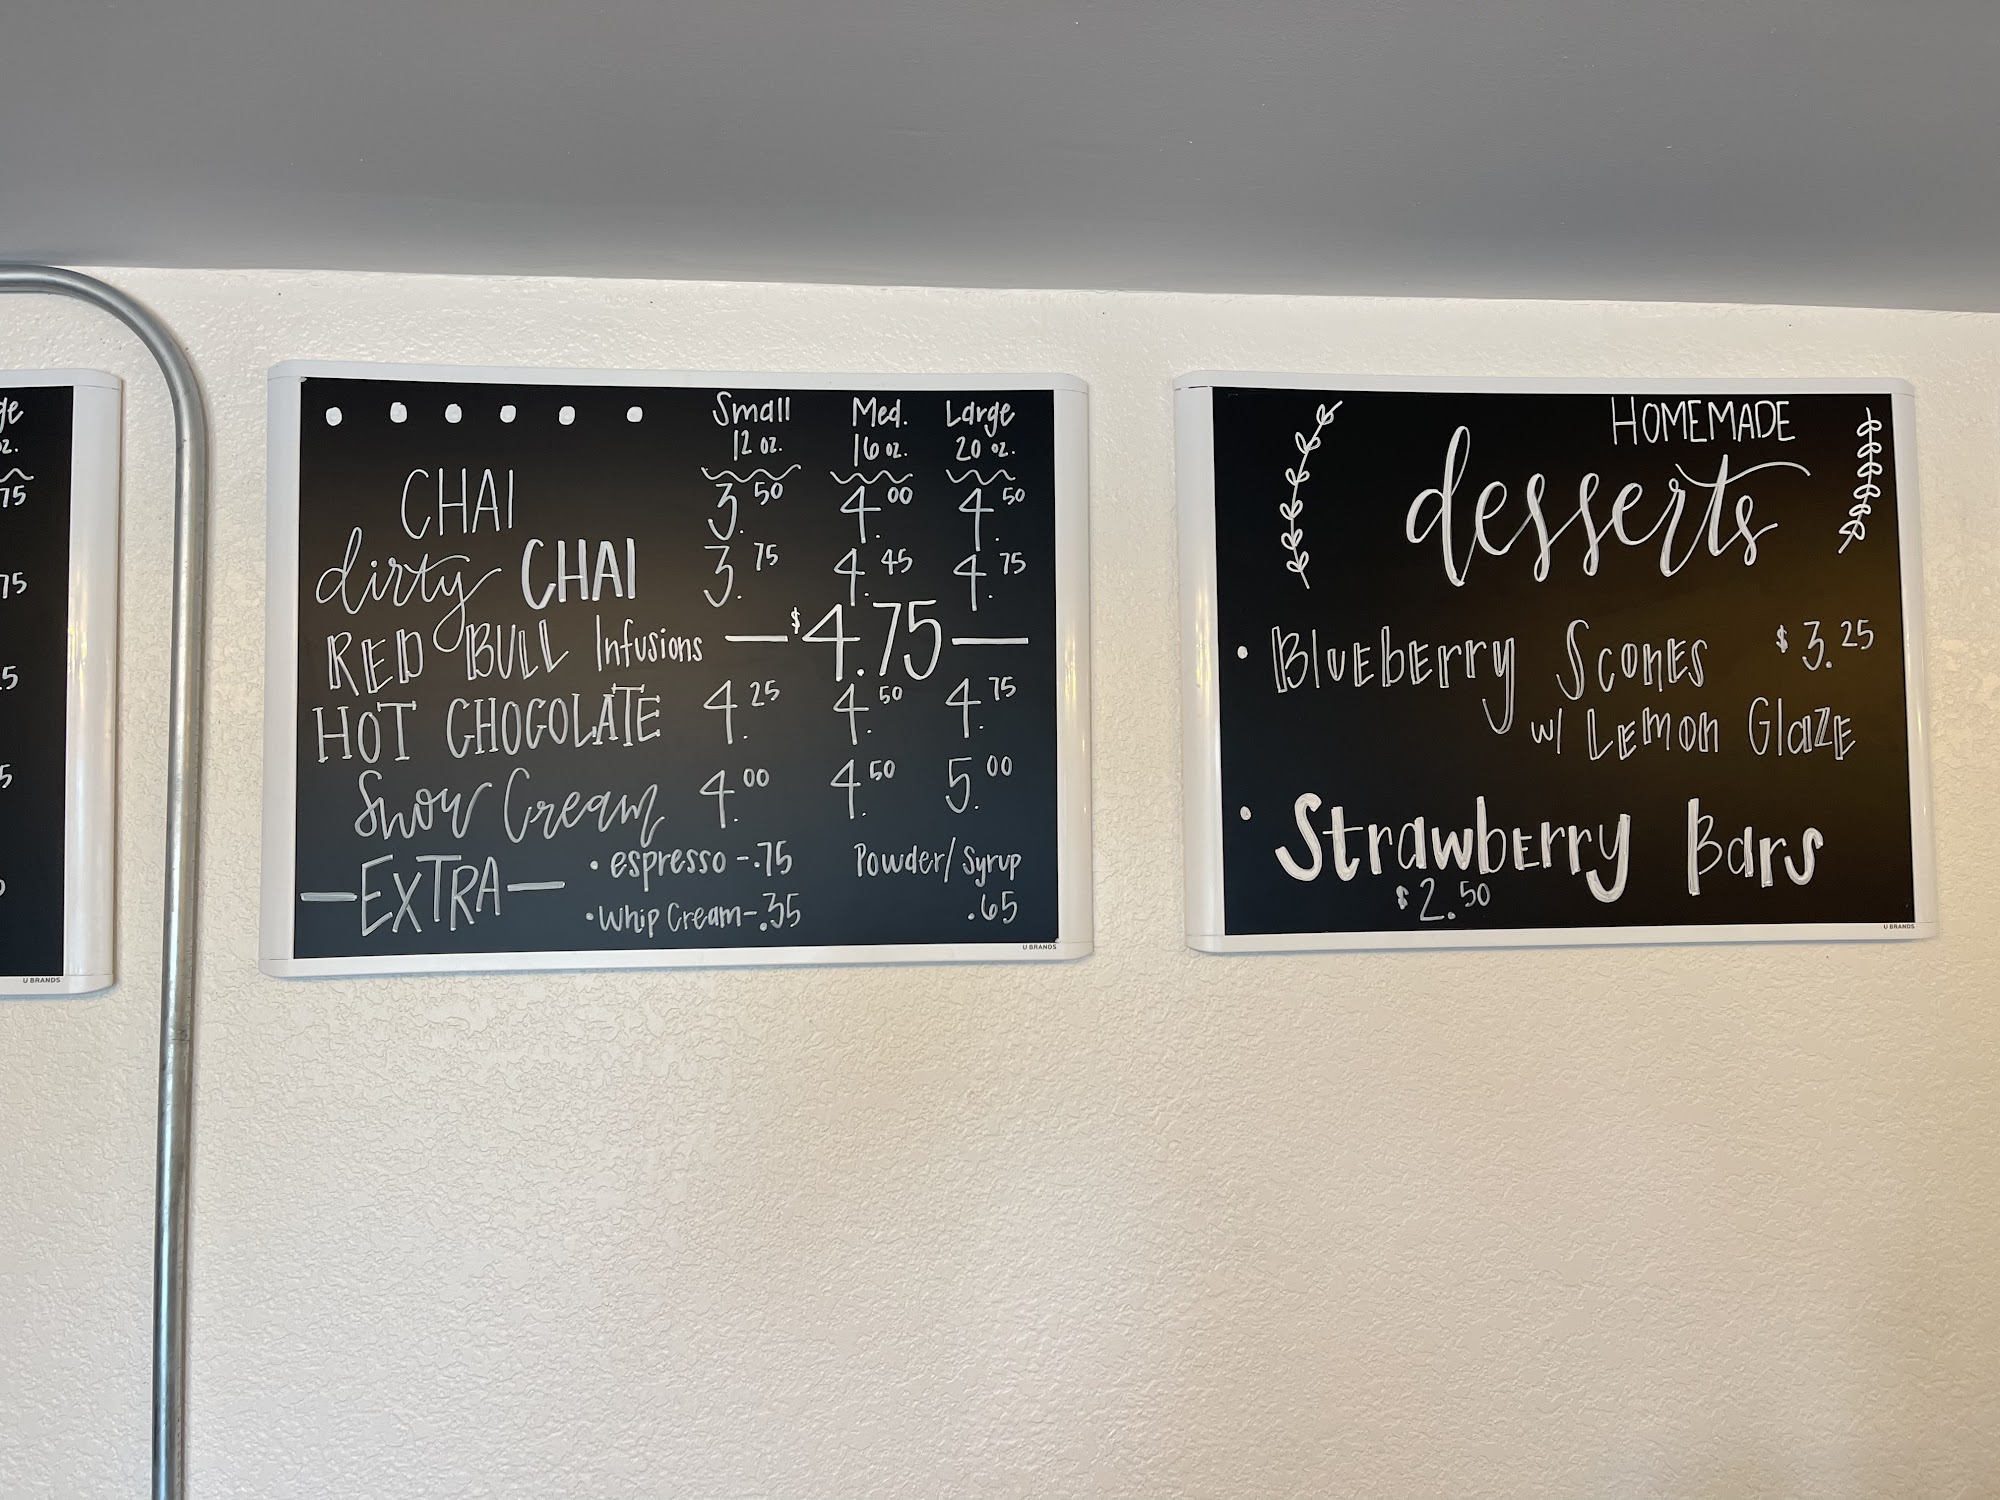 ge
oz.
75
75
5
5
U BRANDS
Small Med. Large
12 oz. 16 oz. 20 oz.
CHAI 3.50 4.00 4.50
dirty CHAI 3.75 4.45 4.75
RED BULL Infusions — $4.75 —
HOT CHOCOLATE 4.25 4.50 4.75
Snow Cream 4.00 4.50 5.00
— EXTRA — • espresso - .75 Powder/Syrup
• Whip Cream - .35 .65
U BRANDS
HOMEMADE
desserts
• Blueberry Scones $3.25
w/ Lemon Glaze
• Strawberry Bars
$2.50
U BRANDS